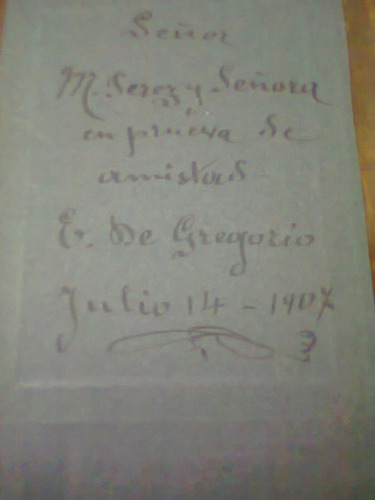 Señor
M. Serez y Señora
en prueva de
amistad
E. De Gregorio
Julio 14 - 1907